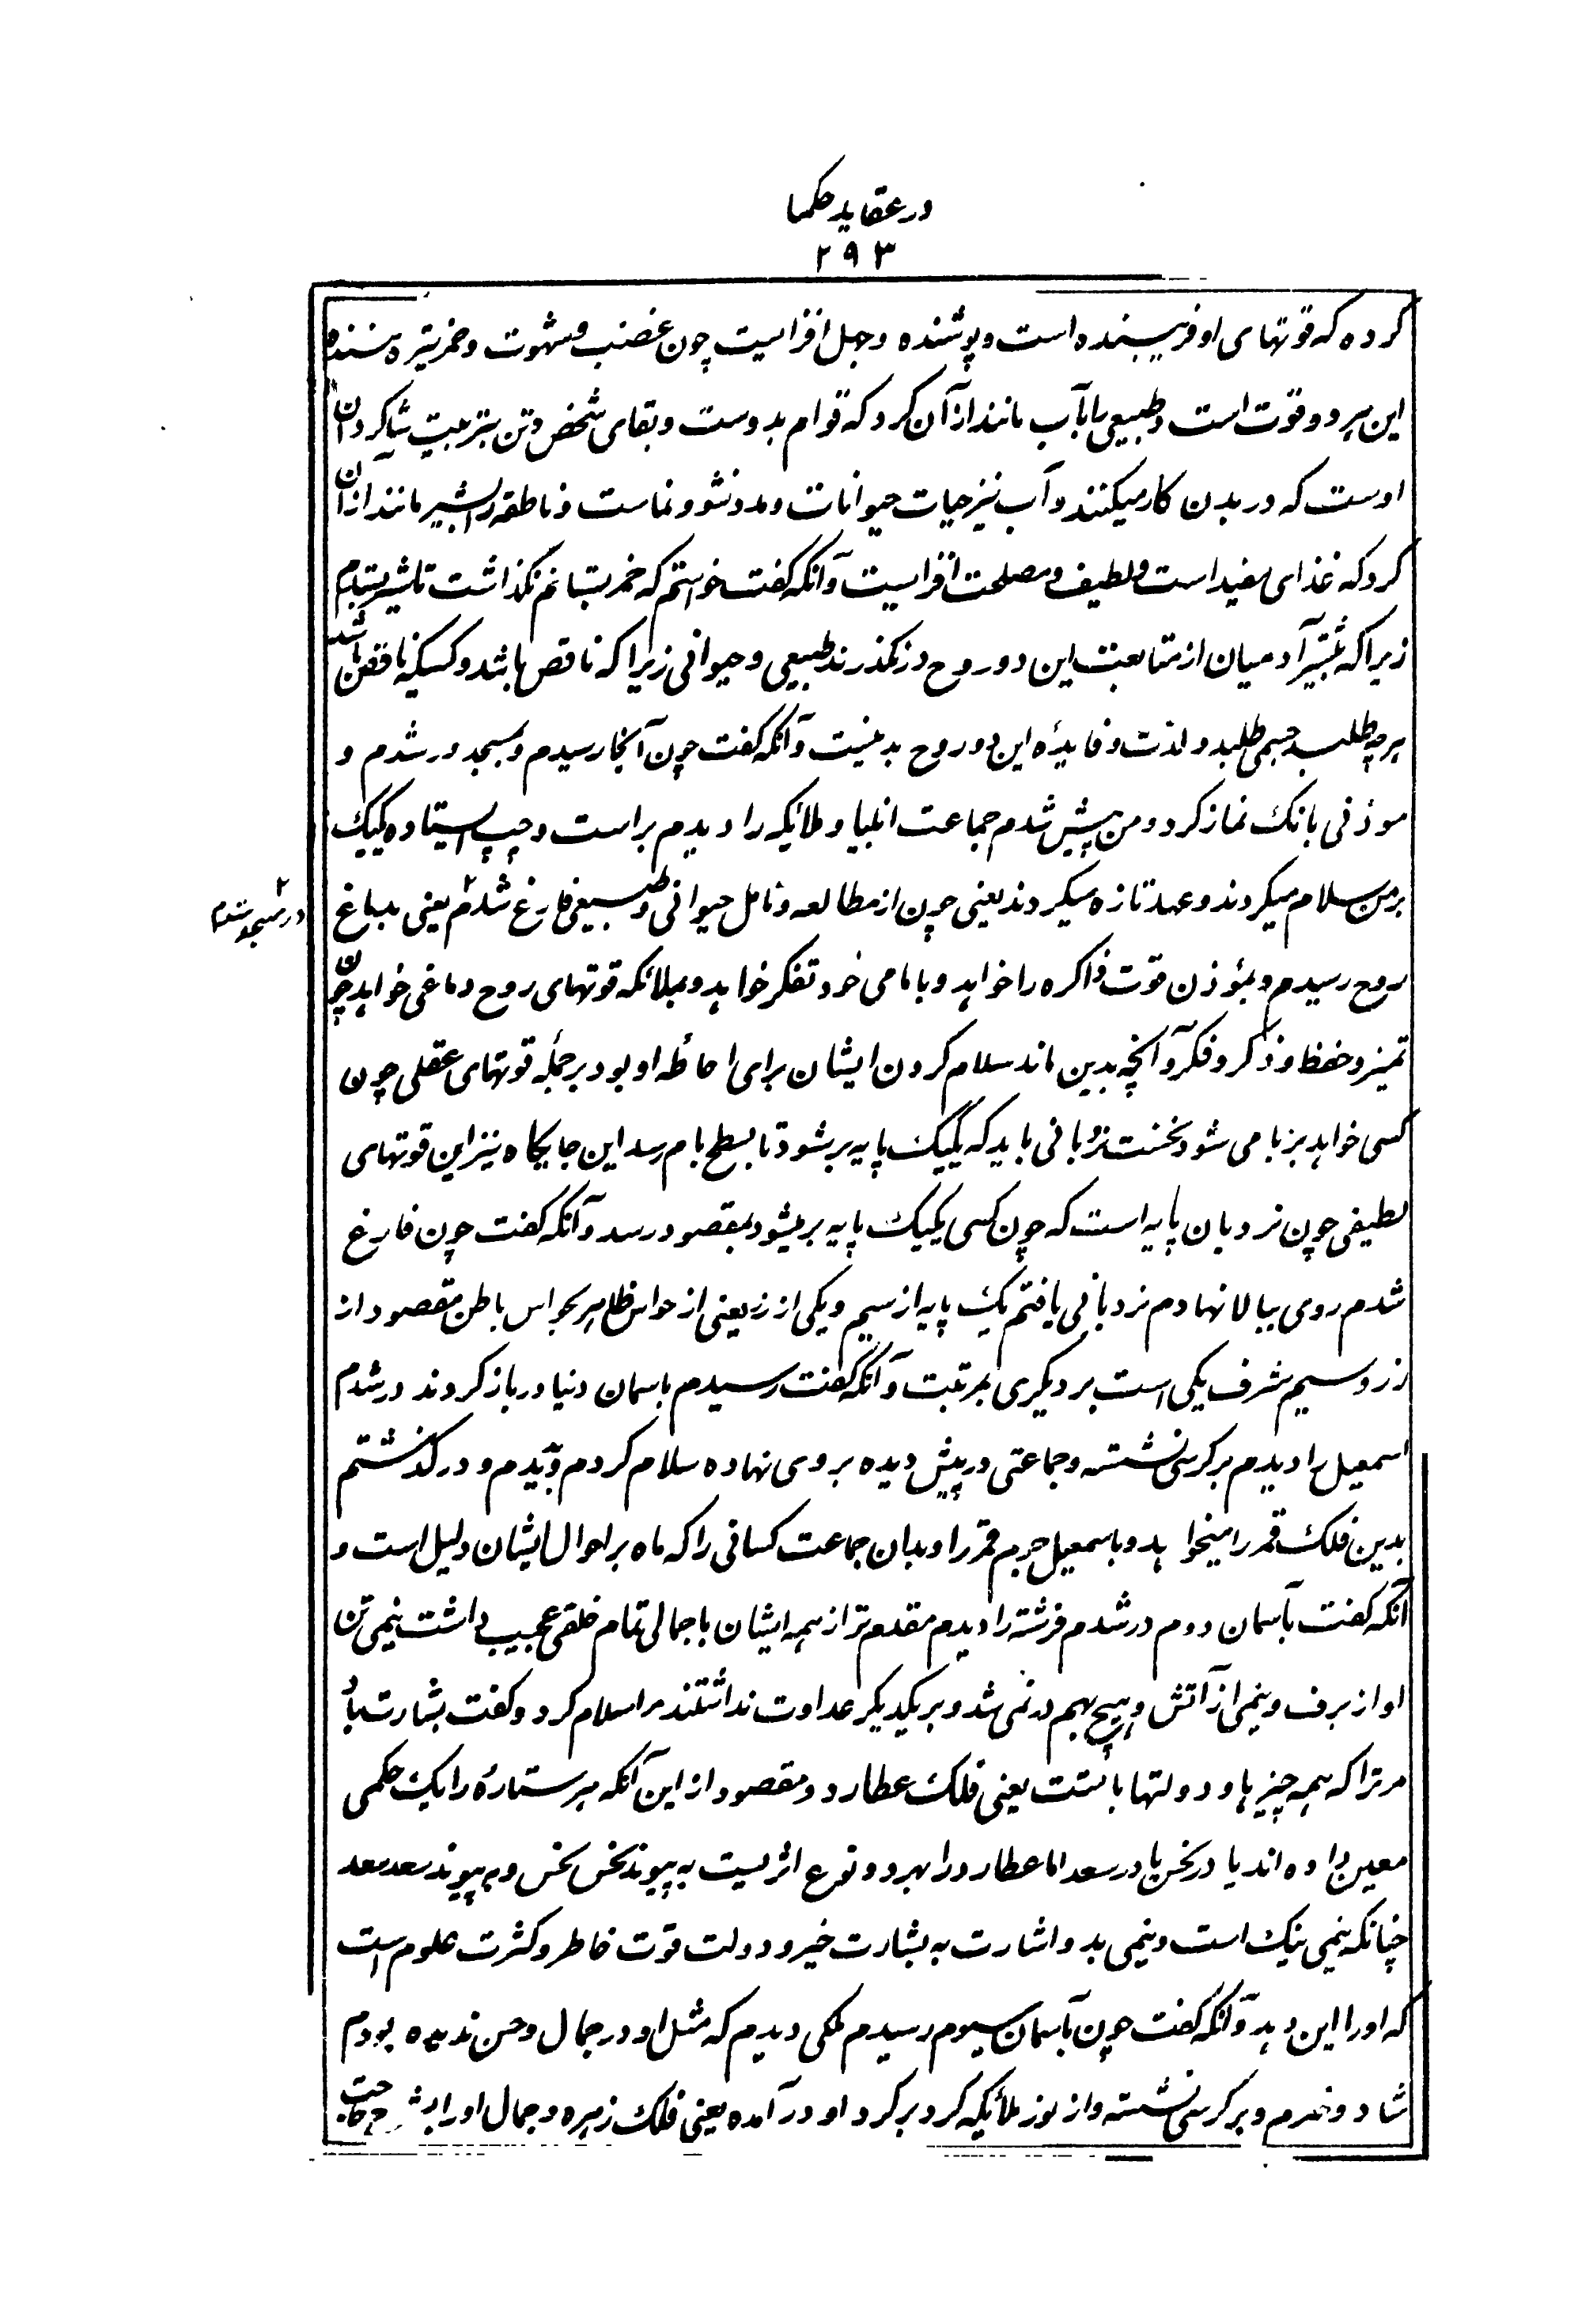 در عقاید حکما
۲۹۳
کرده که قوتهای او فریبنده است و پوشنده و جهل افزاست چون غضب و شهوت و خمر تیره کننده
این هر دو قوت است و طبیعی را بآب مانند از آن کرد که قوام بدوست و بقای شخص و تن بتربیت شاگردان
اوست که در بدن کار میکنند و آب نیز حیات حیوانات و مدد نشو و نماست و ناطقه را بشیر مانند از آن
کرد که غذای مفید است و لطیف و مصلحت افزاست و آنکه گفت خواستم که خمر بستانم نگذاشت تا شیر بستدم
زیرا که بیشتر آدمیان از متابعت این دو روح در نگذرند طبیعی و حیوانی زیرا که ناقص باشد و کسیکه ناقص باشد
هر چه طلبد جسمی طلبد و لذت و فایده این دو روح بدنیست و آنکه گفت چون آنجا رسیدم و بمسجد در شدم و
موذنی بانگ نماز کرد و من پیش شدم جماعت انبیا و ملائکه را دیدم بر است و چپ ایستاده یکیک
بر من سلام میکردند و عهد تازه میکردند یعنی چون از مطالعه و تامل حیوانی و طبیعی فارغ شدم یعنی بدماغ
در مسجد شدم
روح رسیدم و بمؤذن قوت ذاکره را خواهد و بامامی خود تفکر خواهد و بملائکه قوتهای روح دماغی خواهد چون
تمیز و حفظ و ذکر و فکر و آنچه بدین ماند سلام کردن ایشان برای احاطه او بود بر جمله قوتهای عقلی چون
کسی خواهد بر بامی شود نخست نردبانی باید که یکیک پایه بر شود تا بسطح بام رسد این جایگاه نیز این قوتهای
لطیفی چون نردبان پایه است که چون کسی یکیک پایه بر میشود بمقصود رسد و آنکه گفت چون فارغ
شدم روی ببالا نهادم نردبانی یافتم یک پایه از سیم و یکی از زر یعنی از حواس ظاهر بحواس باطن مقصود از
زر و سیم شرف یکی است بر دیگری بمرتبت و آنکه گفت رسیدم بآسمان دنیا در باز کردند در شدم
اسمعیل را دیدم بر کرسی نشسته و جماعتی در پیش دیده بر وی نهاده سلام کردم و دیدم و در گذشتم
بدین فلک قمر را میخواهد و باسمعیل جرم قمر را و بدان جماعت کسانی را که ماه بر احوال ایشان دلیل است و
آنکه گفت بآسمان دوم در شدم فرشته را دیدم مقدم تر از همه ایشان با جمالی تمام خلقی عجیب داشت نیمی تن
او از برف و نیمی از آتش و هیچ بهم در نمی شد و بر یکدیگر عداوت نداشتند مرا سلام کرد و گفت بشارت باد
مر ترا که همه چیزها و دولتها با تست یعنی فلک عطارد و مقصود از این آنکه هر ستاره را یک حکمی
معین داده اند یا در نحس یا در سعد اما عطارد را بهر دو نوع اثریست به پیوند نحس نحس و به پیوند سعد سعد
چنانکه نیمی نیک است و نیمی بد و اشارت به بشارت خیر و دولت قوت خاطر و کثرت علوم است
که او را این دهد و آنکه گفت چون بآسمان سیوم رسیدم ملکی دیدم که مثل او در جمال و حسن ندیده بودم
شاد و خرم و بر کرسی نشسته و از نور ملائکه گرد بر گرد او در آمده یعنی فلک زهره و جمال او را